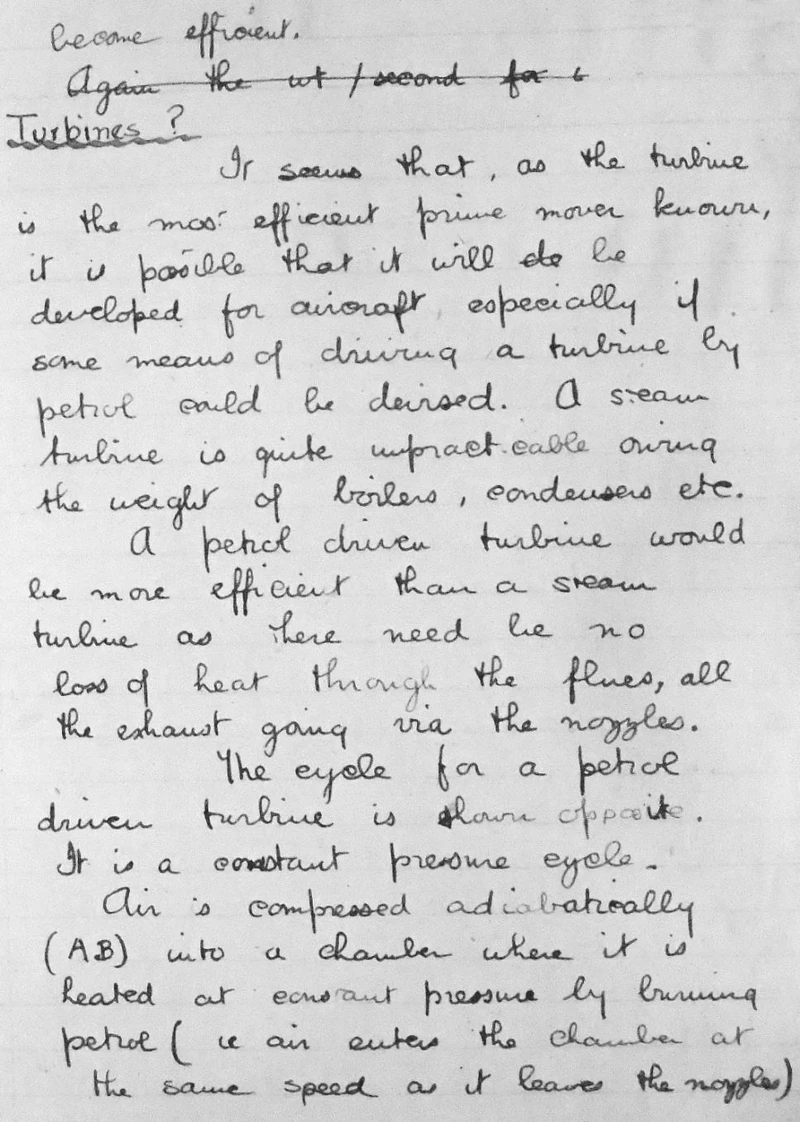 become efficient.
Again the wt / second for
Turbines ?
It seems that, as the turbine
is the most efficient prime mover known,
it is possible that it will be
developed for aircraft, especially if
some means of driving a turbine by
petrol could be devised. A steam
turbine is quite impracticable owing
the weight of boilers, condensers etc.
A petrol driven turbine would
be more efficient than a steam
turbine as there need be no
loss of heat through the flues, all
the exhaust going via the nozzles.
The cycle for a petrol
driven turbine is shown opposite.
It is a constant pressure cycle.
Air is compressed adiabatically
(AB) into a chamber where it is
heated at constant pressure by burning
petrol ( ie air enters the chamber at
the same speed as it leaves the nozzles)